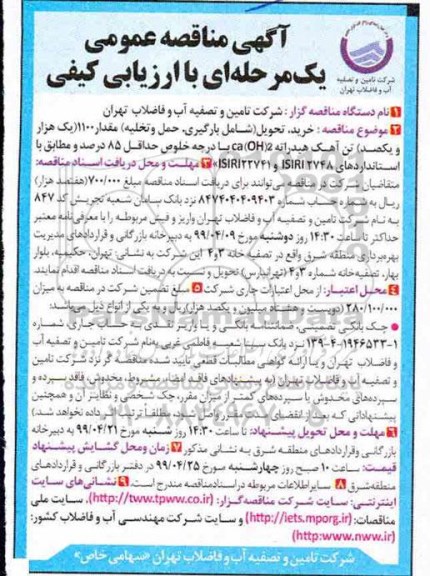 آگهی مناقصه عمومی
یک‌مرحله‌ای با ارزیابی کیفی
شرکت تامین و تصفیه
آب و فاضلاب تهران
۱ نام دستگاه مناقصه گزار: شرکت تامین و تصفیه آب و فاضلاب تهران
۲ موضوع مناقصه: خرید، تحویل(شامل بارگیری، حمل وتخلیه) مقدار۱۱۰۰(یک هزار
و یکصد) تن آهک هیدراته ca(OH)2 بـا درجه خلوص حداقل ۸۵ درصد و مطابق با
استانداردهای ISIRI ۲۷۴۸ و ISIRI۲۲۷۴۱» ۳ مهلـت و محل دریافت اسناد مناقصه:
متقاضیان شرکت در مناقصه می‌توانند برای دریافت اسناد مناقصه مبلغ ۷۰۰/۰۰۰(هفتصد هزار)
ریال به شماره حساب شماره ۸۴۷۴۰۴۰۴۰۹۴۰۳ نزد بانک سامان شعبه تجریش کد ۸۴۷
به نام شرکت تامین و تصفیه آب و فاضلاب تهران واریز و فیش مربوطه را با معرفی‌نامه معتبر
حداکثر تا ساعت ۱۴:۳۰ روز دوشنبه مورخ ۹۹/۰۴/۰۹ به دبیرخانه بازرگانی و قراردادهای مدیریت
بهره‌برداری منطقه شرق واقع در تصفیه خانه ۳و۴ این شرکت به نشانی: تهران، حکیمیه، بلوار
بهار، تصفیه‌خانه شماره ۳و۴ (تهرانپارس) تحویل و نسبت به دریافت اسناد مناقصه اقدام نمایند.
۴ محل اعتبار: از محل اعتبارات جاری شرکت ۵ مبلغ تضمین شرکت در مناقصه به میزان
۲۸۰/۱۰۰/۰۰۰ (دویست و هشتاد میلیون و یکصد هزار)ریال به یکی از انواع ذیل می‌باشد:
● چک بانکـی تضمینی، ضمانتنامه بانکـی و یا واریز نقـدی به حساب جاری شماره
۱۳۹-۴-۱۹۴۶۵۳۳-۱ نزد بانک سینا شعبه فاطمی غربی به‌نام شرکت تامین و تصفیه آب
و فاضلاب تهران و یا ارائه گواهی مطالبات قطعی تایید شده مناقصه گر نزد شرکت تامین
و تصفیه آب و فاضلاب تهران (به پیشنهادهای فاقد امضا، مشروط، مخدوش، فاقد سپرده و
سپرده‌های مخدوش یا سپرده‌های کمتر از میزان مقرر، چک شخصی و نظایر آن و همچنین
پیشنهاداتی که بعد از انقضای مدت مقرر واصل شود، مطلقا ترتیب اثر داده نخواهد شد)
۶ مهلت و محل تحویل پیشنهاد: تا ساعت ۱۴:۳۰ روز شنبه مورخ ۹۹/۰۴/۲۱ به دبیرخانه
بازرگانی وقراردادهای منطقه شرق به نشانی مذکور ۷ زمان ومحل گشایش پیشنهاد
قیمت: ساعت ۱۰ صبح روز چهارشنبه مورخ ۹۹/۰۴/۲۵ در دفتر بازرگانی و قراردادهای
منطقه شرق ۸ سایر اطلاعات مربوطه در اسنادمناقصه مندرج است. ۹ نشانی‌های سایت
اینترنتی: سایت شرکت مناقصه‌گزار: (http://www.tpww.co.ir)، سایت ملی
مناقصات: (http://iets.mporg.ir) و سایت شرکت مهندسی آب و فاضلاب کشور:
(http:www.nww.ir)
شرکت تامین و تصفیه آب و فاضلاب تهران «سهامی خاص»